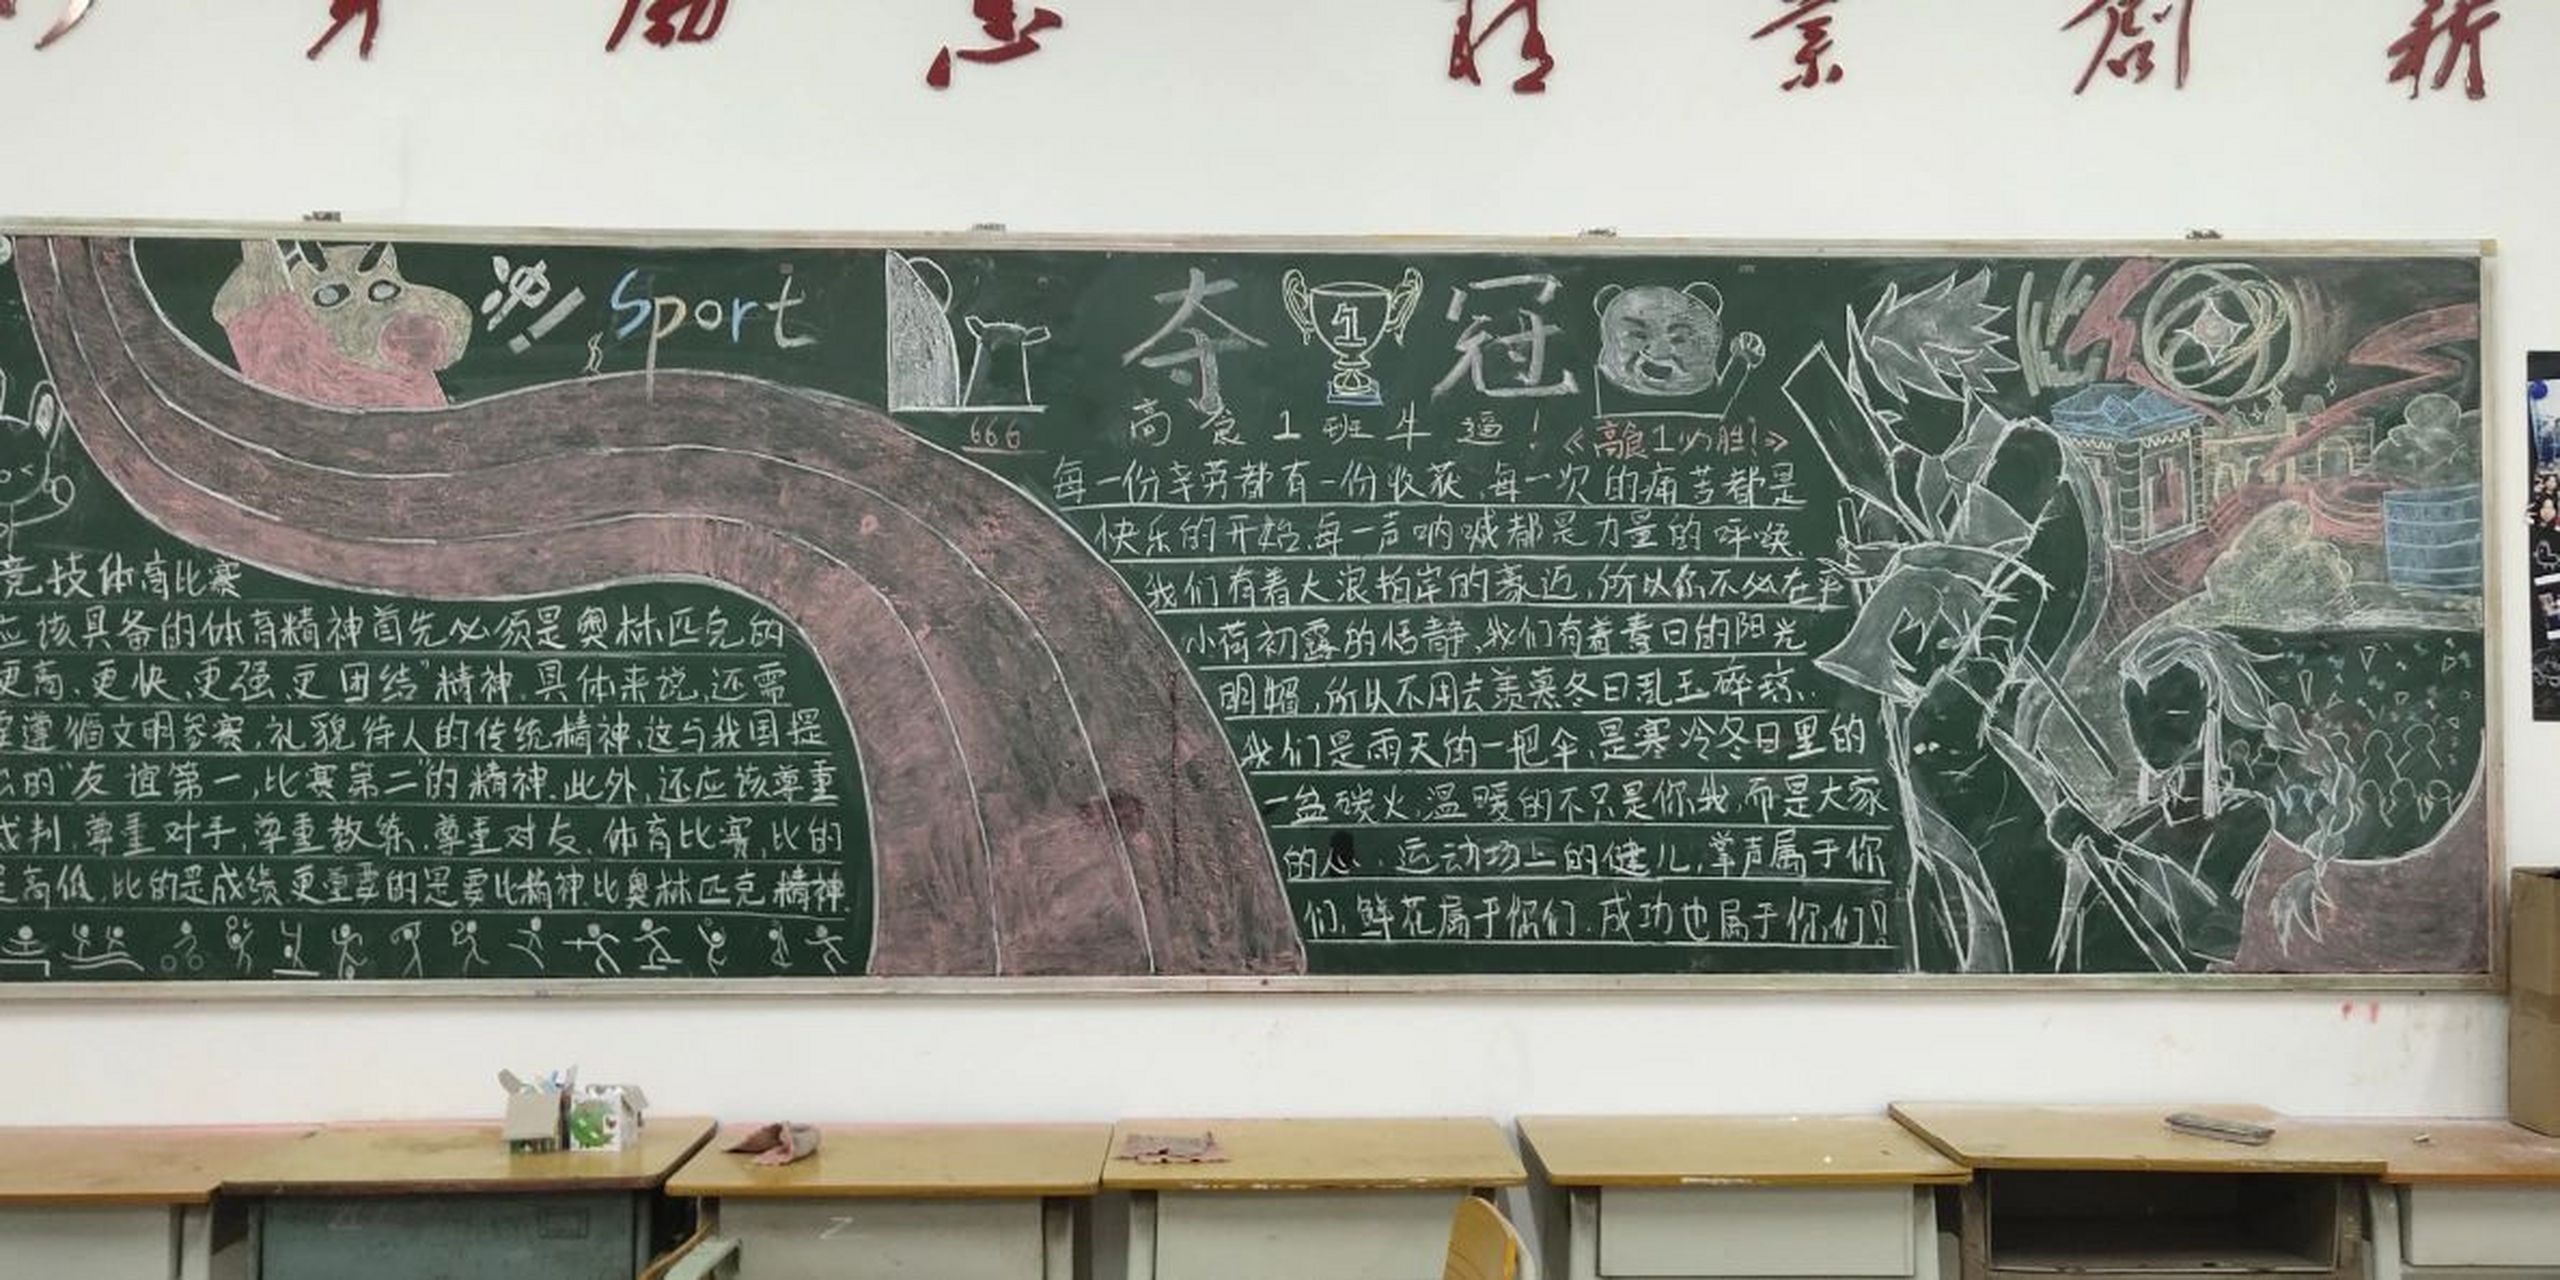 志 精 業 創 新
冲! Sport
夺 1 冠
666
高食1班牛逼!
《高食1必胜!》
每一份辛劳都有一份收获,每一次的痛苦都是
快乐的开始,每一声呐喊都是力量的呼唤.
我们有着大浪拍岸的豪迈,所以你不必在乎
小荷初露的恬静,我们有着春日的阳光
明媚,所以不用去羡慕冬日乱玉碎琼.
我们是雨天的一把伞,是寒冷冬日里的
一盆碳火,温暖的不只是你我,而是大家
的心..运动场上的健儿,掌声属于你
们,鲜花属于你们.成功也属于你们!
竞技体育比赛
应该具备的体育精神首先必须是奥林匹克的
更高、更快、更强、更团结"精神.具体来说,还需
遵循文明参赛,礼貌待人的传统精神,这与我国提
的"友谊第一,比赛第二"的精神.此外,还应该尊重
裁判,尊重对手,尊重教练,尊重对友.体育比赛,比的
是高低,比的是成绩更重要的是要比精神比奥林匹克精神.